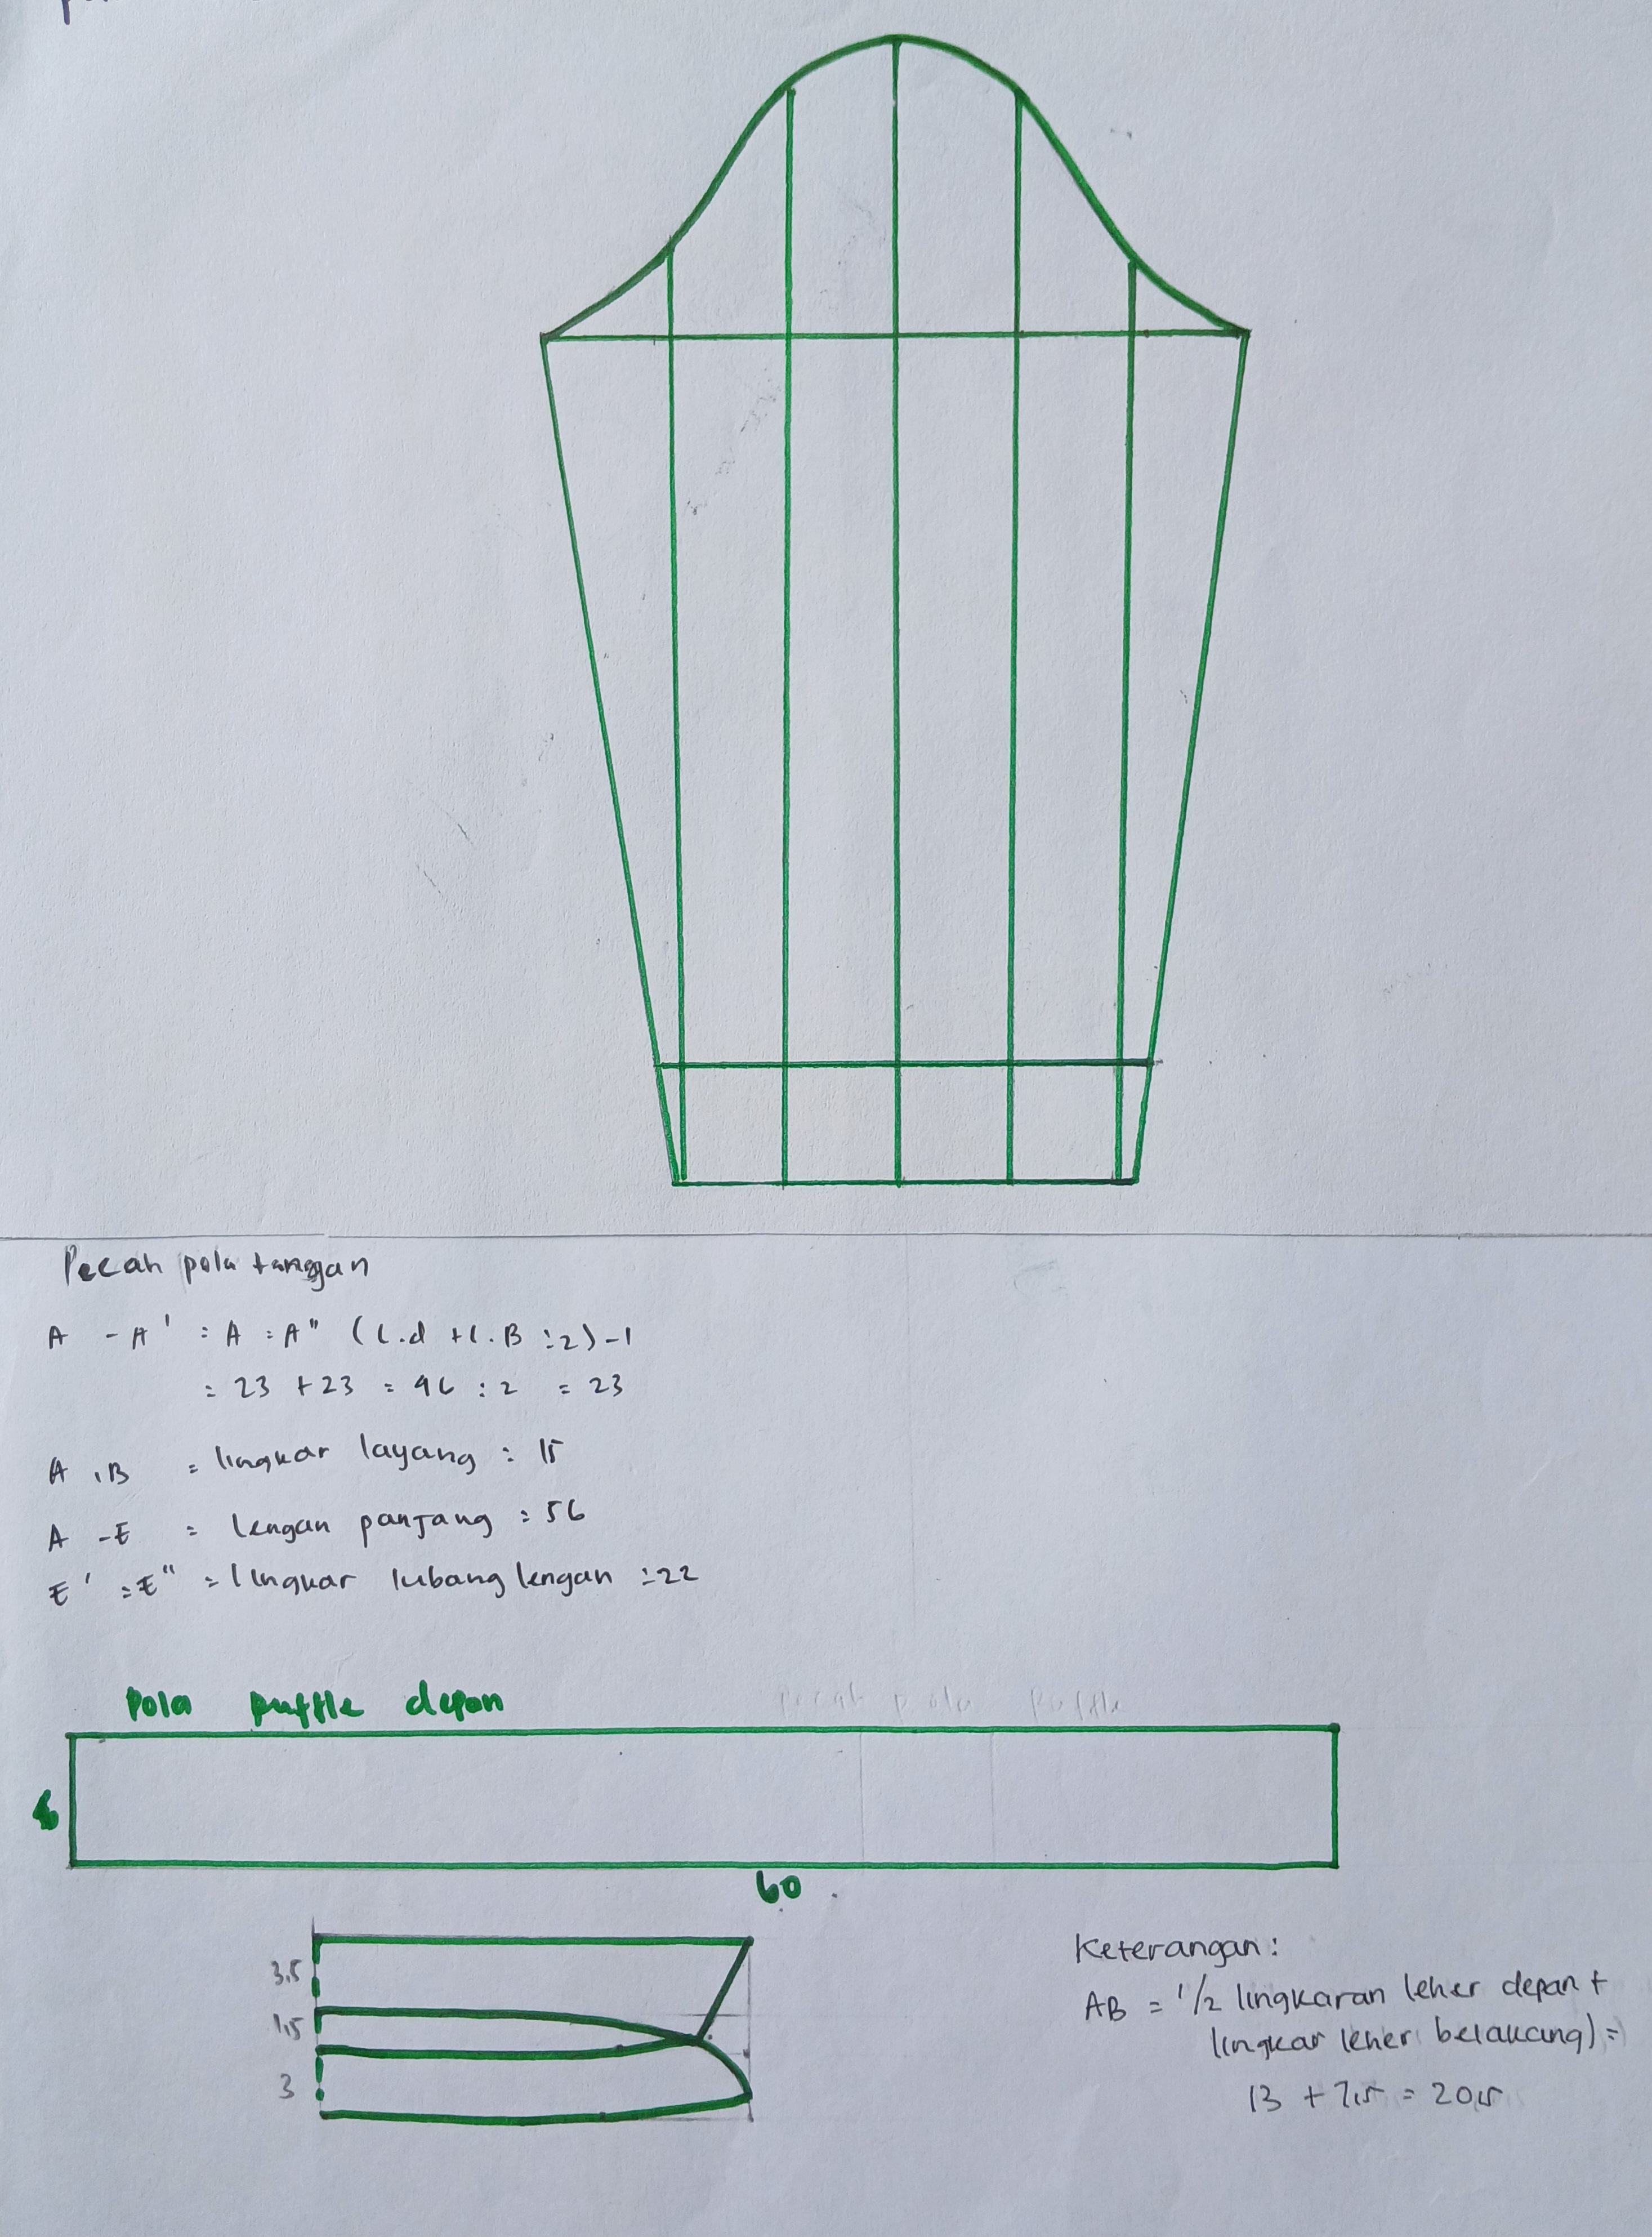 Pecah pola tanggan
A - A' = A = A" (l.d + l.B : 2) - 1
= 23 + 23 = 46 : 2 = 23
A , B = lingkar layang : 15
A - E = lengan panjang : 56
E' = E" = lingkar lubang lengan : 22
Pola puffle depan
pecah pola puffle
60
3,5
1,5
3
Keterangan :
AB = 1/2 lingkaran leher depan +
lingkar leher belakang) =
13 + 7,5 = 20,5